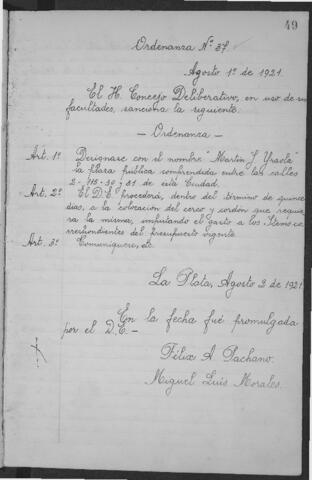 49
Ordenanza Nº 37.
Agosto 1º de 1921.
El H. Concejo Deliberativo, en uso de sus
facultades, sanciona la siguiente.
— Ordenanza —
Art. 1º Desígnase con el nombre "Martín J. Yraola"
la plaza pública comprendida entre las calles
2 - 115 - 50 y 51 de esta Ciudad.
Art. 2º El D.E. procederá, dentro del término de quince
días, a la colocación del cerco y cordón que requie
ra la misma, imputando el gasto a los Items co
rrespondientes del presupuesto vigente.
Art. 3º Comuníquese, etc.
La Plata, Agosto 3 de 1921
En la fecha fué promulgada
por el D.E.—
Félix A Pachano.
Miguel Luis Morales.